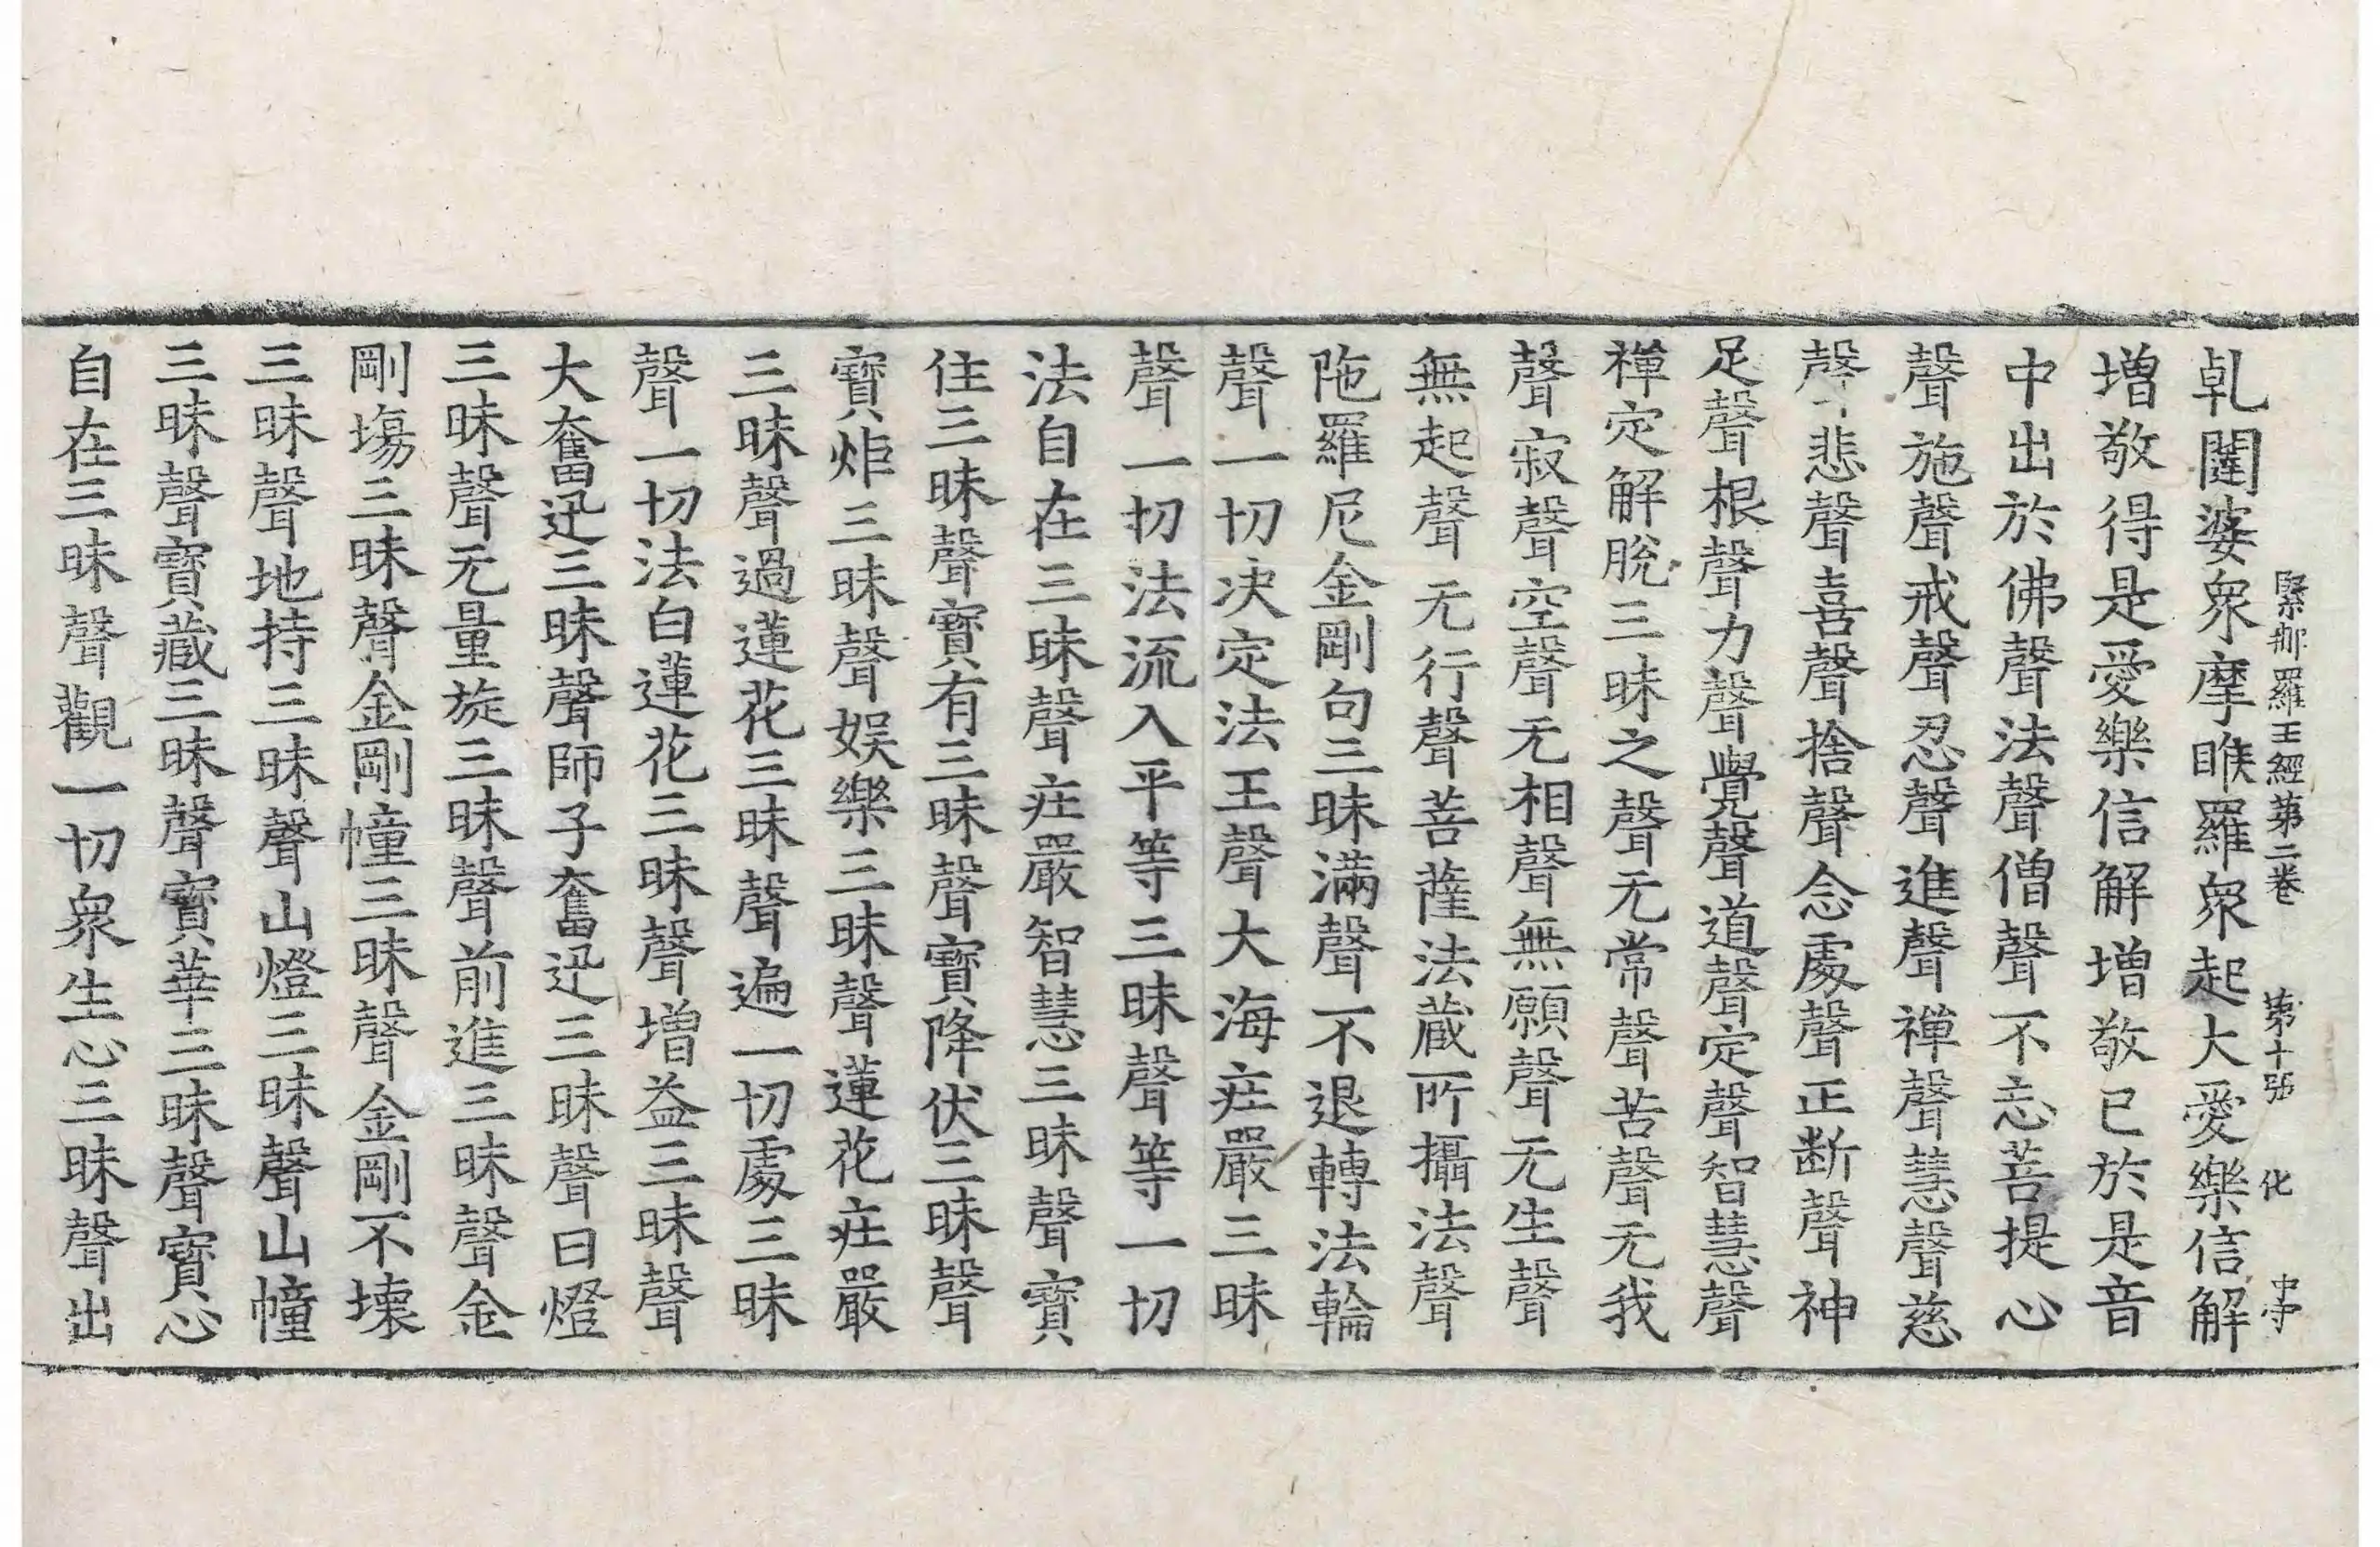 緊那羅王經第二卷 第十張 化 中守
乹闥婆衆摩睺羅衆起大愛樂信解
增敬得是愛樂信解增敬已於是音
中出於佛聲法聲僧聲不忘菩提心
聲施聲戒聲忍聲進聲禪聲慧聲慈
聲悲聲喜聲捨聲念處聲正断聲神
足聲根聲力聲覺聲道聲定聲智慧聲
禪定解脫三昧之聲无常聲苦聲无我
聲寂聲空聲无相聲無願聲无生聲
無起聲无行聲菩薩法蔵所攝法聲
陁羅尼金剛句三昧滿聲不退轉法輪
聲一切决定法王聲大海疘嚴三昧
聲一切法流入平等三昧聲等一切
法自在三昧聲疘嚴智慧三昧聲寶
住三昧聲寶有三昧聲寶降伏三昧聲
寶炬三昧聲娛樂三昧聲蓮花疘嚴
三昧聲過蓮花三昧聲遍一切處三昧
聲一切法白蓮花三昧聲增益三昧聲
大奮迅三昧聲師子奮迅三昧聲日燈
三昧聲无量旋三昧聲前進三昧聲金
剛塲三昧聲金剛幢三昧聲金剛不壞
三昧聲地持三昧聲山燈三昧聲山幢
三昧聲寶藏三昧聲寶華三昧聲寶心
自在三昧聲觀一切衆生心三昧聲出